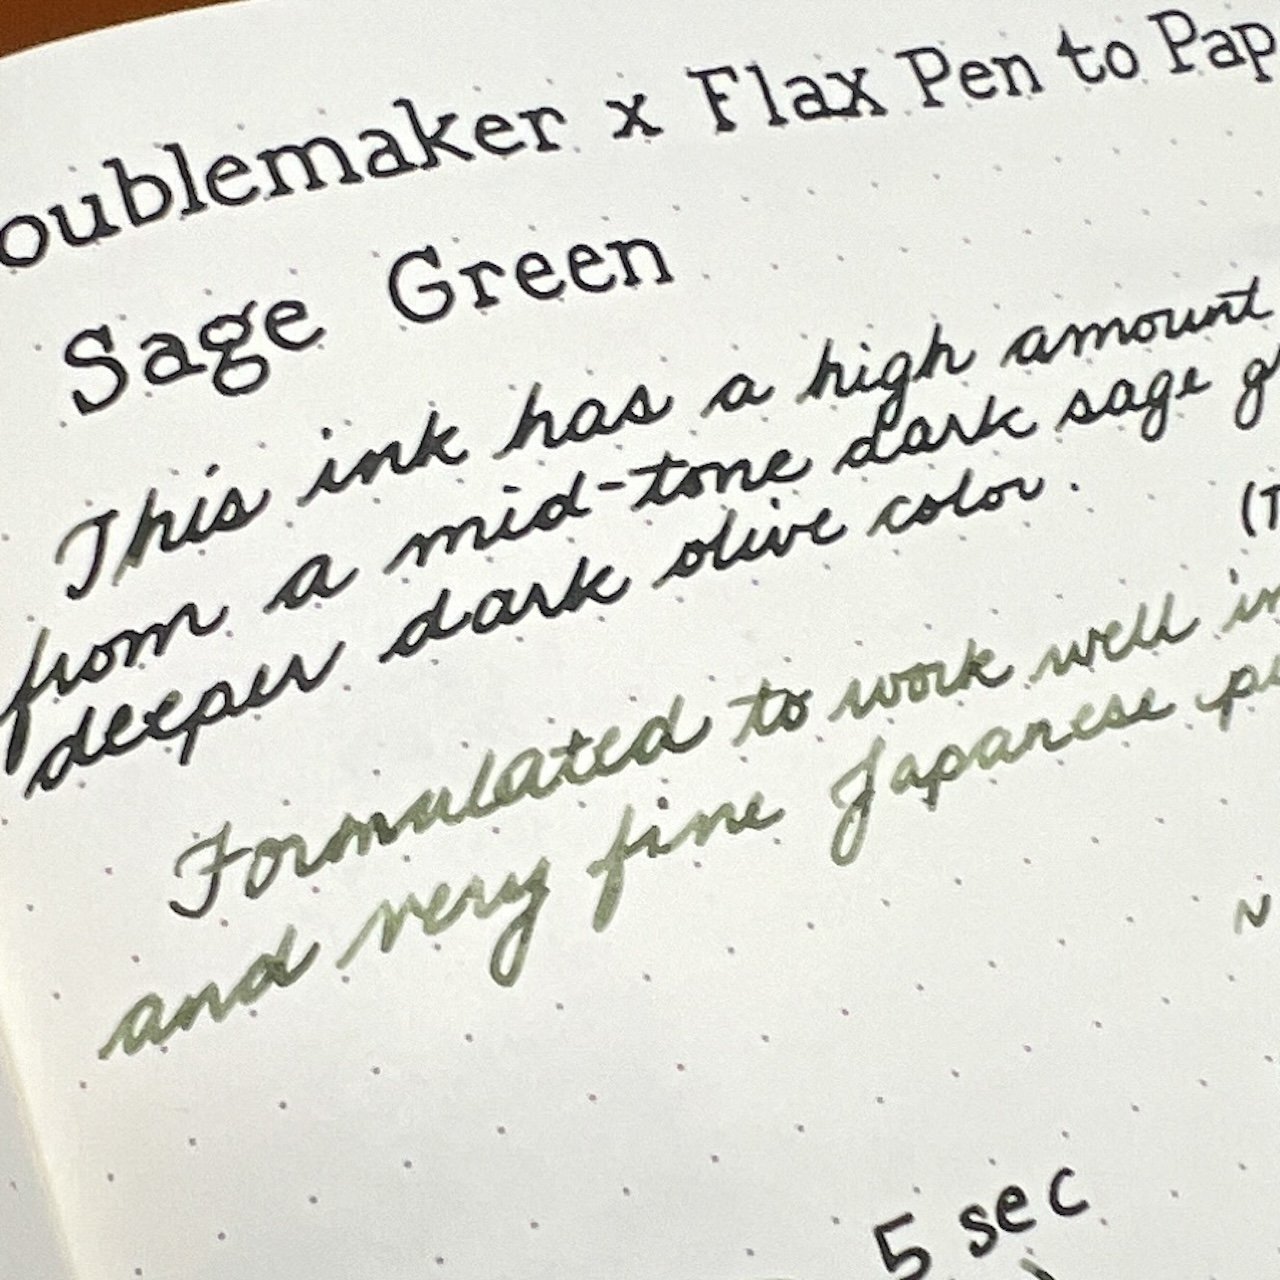 oublemaker x Flax Pen to Pap
Sage Green
This ink has a high amount
from a mid-tone dark sage g
deeper dark olive color.
(T
Formulated to work well in
and very fine Japanese p
N
5 sec